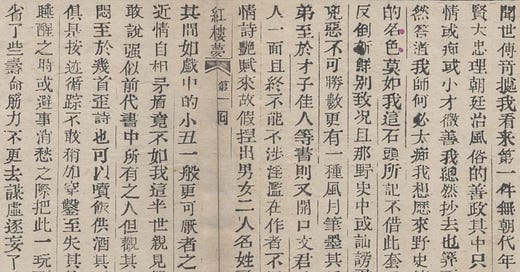 聞世傳擬我看來第一件無朝代年
賢大忠理朝廷治風俗的善政其中只
情或痴或小才微善我縱然抄去也算
然答道我師何必太痴我想歷來野史
的名色莫如我這石頭所記不借此套
反倒新鮮别致况且那野史中或訕謗
兇惡不可勝數更有一種風月筆墨其
弟至於才子佳人等書則又開口文君
人一面且終不能不涉淫濫在作者不
情詩艷賦來故假捏出男女二人名姓
紅樓夢 第一囘
其間如戲中的小丑一般更可厭者之
近情自相矛盾竟不如我這半世親見
敢說强似前代書中所有之人但觀其
悶至於幾首歪詩也可以噴飯供酒其
俱是按迹循踪不敢稍加穿鑿至失其
睡醒之時或避事消愁之際把此一玩
省了些壽命筋力不更去謀虛逐妄了